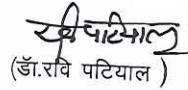 रवि पटियाल
(डॉ.रवि पटियाल )